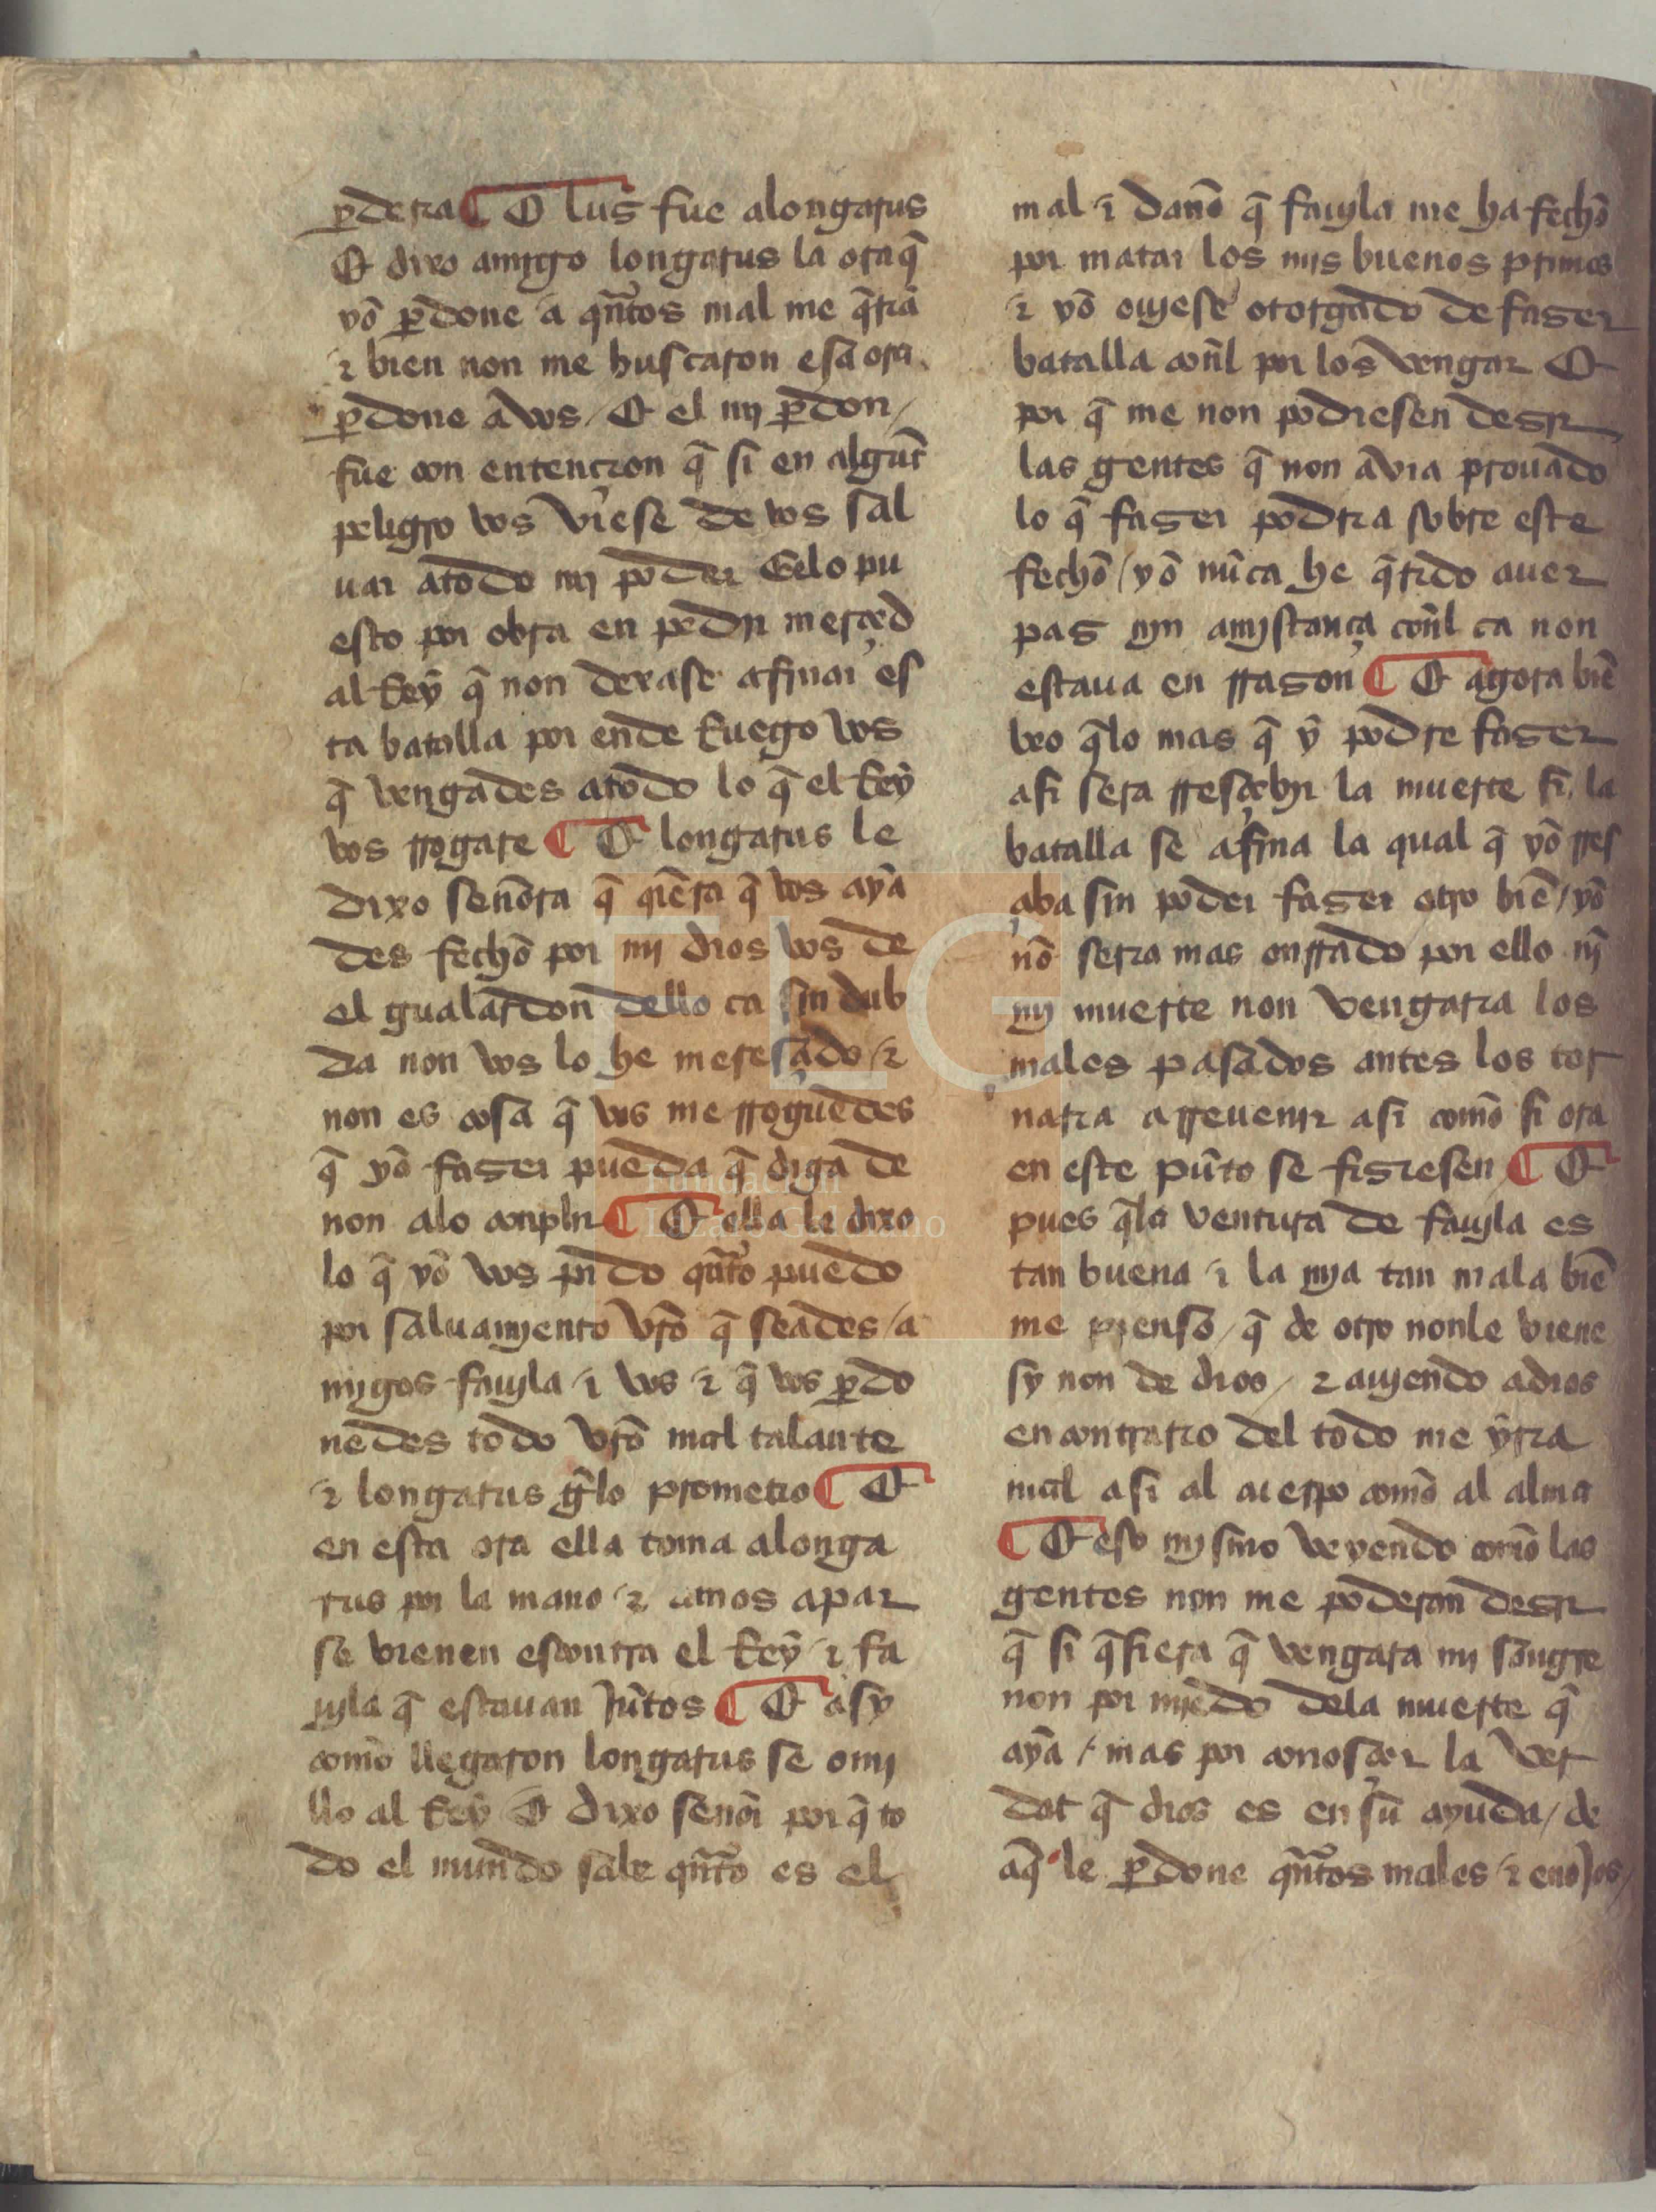 pdera ¶ E lus̃ fue alongarus
E dixo amygo longarus la ora q̃
yõ p̱done a qñtos mal me q̃ria
⁊ bien non me buscaron esa ora
p̱done a vos / E el mj p̱don /
fue con entencion q̃ si en algũt
peligro vos viese de vos sal
uar a todo mj poder E elo pu
esto por obra en pedir merçed
al Rey q̃ non dexase afinar es
ta batalla por ende Ruego vos
q̃ vengades atodo lo q̃ el Rey
vos rrogare ¶ E longarus le
dixo señora q̃ q̃era q̃ vos aya
des fecho por mj dios vos de
el gualardon dello ca sin dub
da non vos lo he meresçido / ⁊
non es cosa q̃ vos me rroguedes
q̃ yõ faser pueda q̃ diga de
non alo conplir ¶ E ella le dixo
lo q̃ yõ vos pido qñto puedo
por saluamyento vr̃o q̃ seades / a
mygos fauyla ⁊ vos ⁊ q̃ vos p̱do
nedes todo vr̃o mal talante
⁊ longarus g̃lo prometio ¶ E
en esta ora ella toma alonga
rus por la mano ⁊ amos apar
se vienen escontra el Rey ⁊ fa
uyla q̃ estauan jũtos ¶ E asy
como llegaron longarus se omj
llo al Rey E dixo señor por q̃ to
do el mundo sabe qñto es el
mal ⁊ daño q̃ fauyla me ha fecho
por matar los mjs buenos primos
⁊ yõ ouyese otorgado de faser
batalla coñl por los vengar E
por q̃ me non podiesen desir
las gentes q̃ non avia prouado
lo q̃ faser podria sobre este
fecho / yõ nũca he q̃rido auer
pas njn amjstança coñl ca non
estaua en rrason ¶ E agora biẽ
veo q̃lo mas q̃ y podre faser
asi sera rresçebir la muerte si la
batalla se afina la qual q̃ yõ rres
çiba sin poder faser otro biẽ / yõ
nõ seria mas onrrado por ello nj
mj muerte non vengaria los
males pasados antes los tor
naria arreuenir asi como si ora
en este pũto se fisiesen ¶ E
pues q̃la ventura de fauyla es
tan buena ⁊ la mya tan mala biẽ
me pienso / q̃ de otro nonle viene
sy non de dios / ⁊ auyendo adios
en contrario del todo me yria
mal asi al cuerpo como al alma
¶ E eso mjsmo veyendo como las
gentes non me poderan desir
q̃ si q̃siera q̃ vengara mj sangre
non por mjedo dela muerte q̃
aya / mas por conosçer la ver
dat q̃ dios es en su ayuda / de
aq̃ le p̱done qñtos males ⁊ enojos /
FLG
Fundación
Lázaro Galdiano